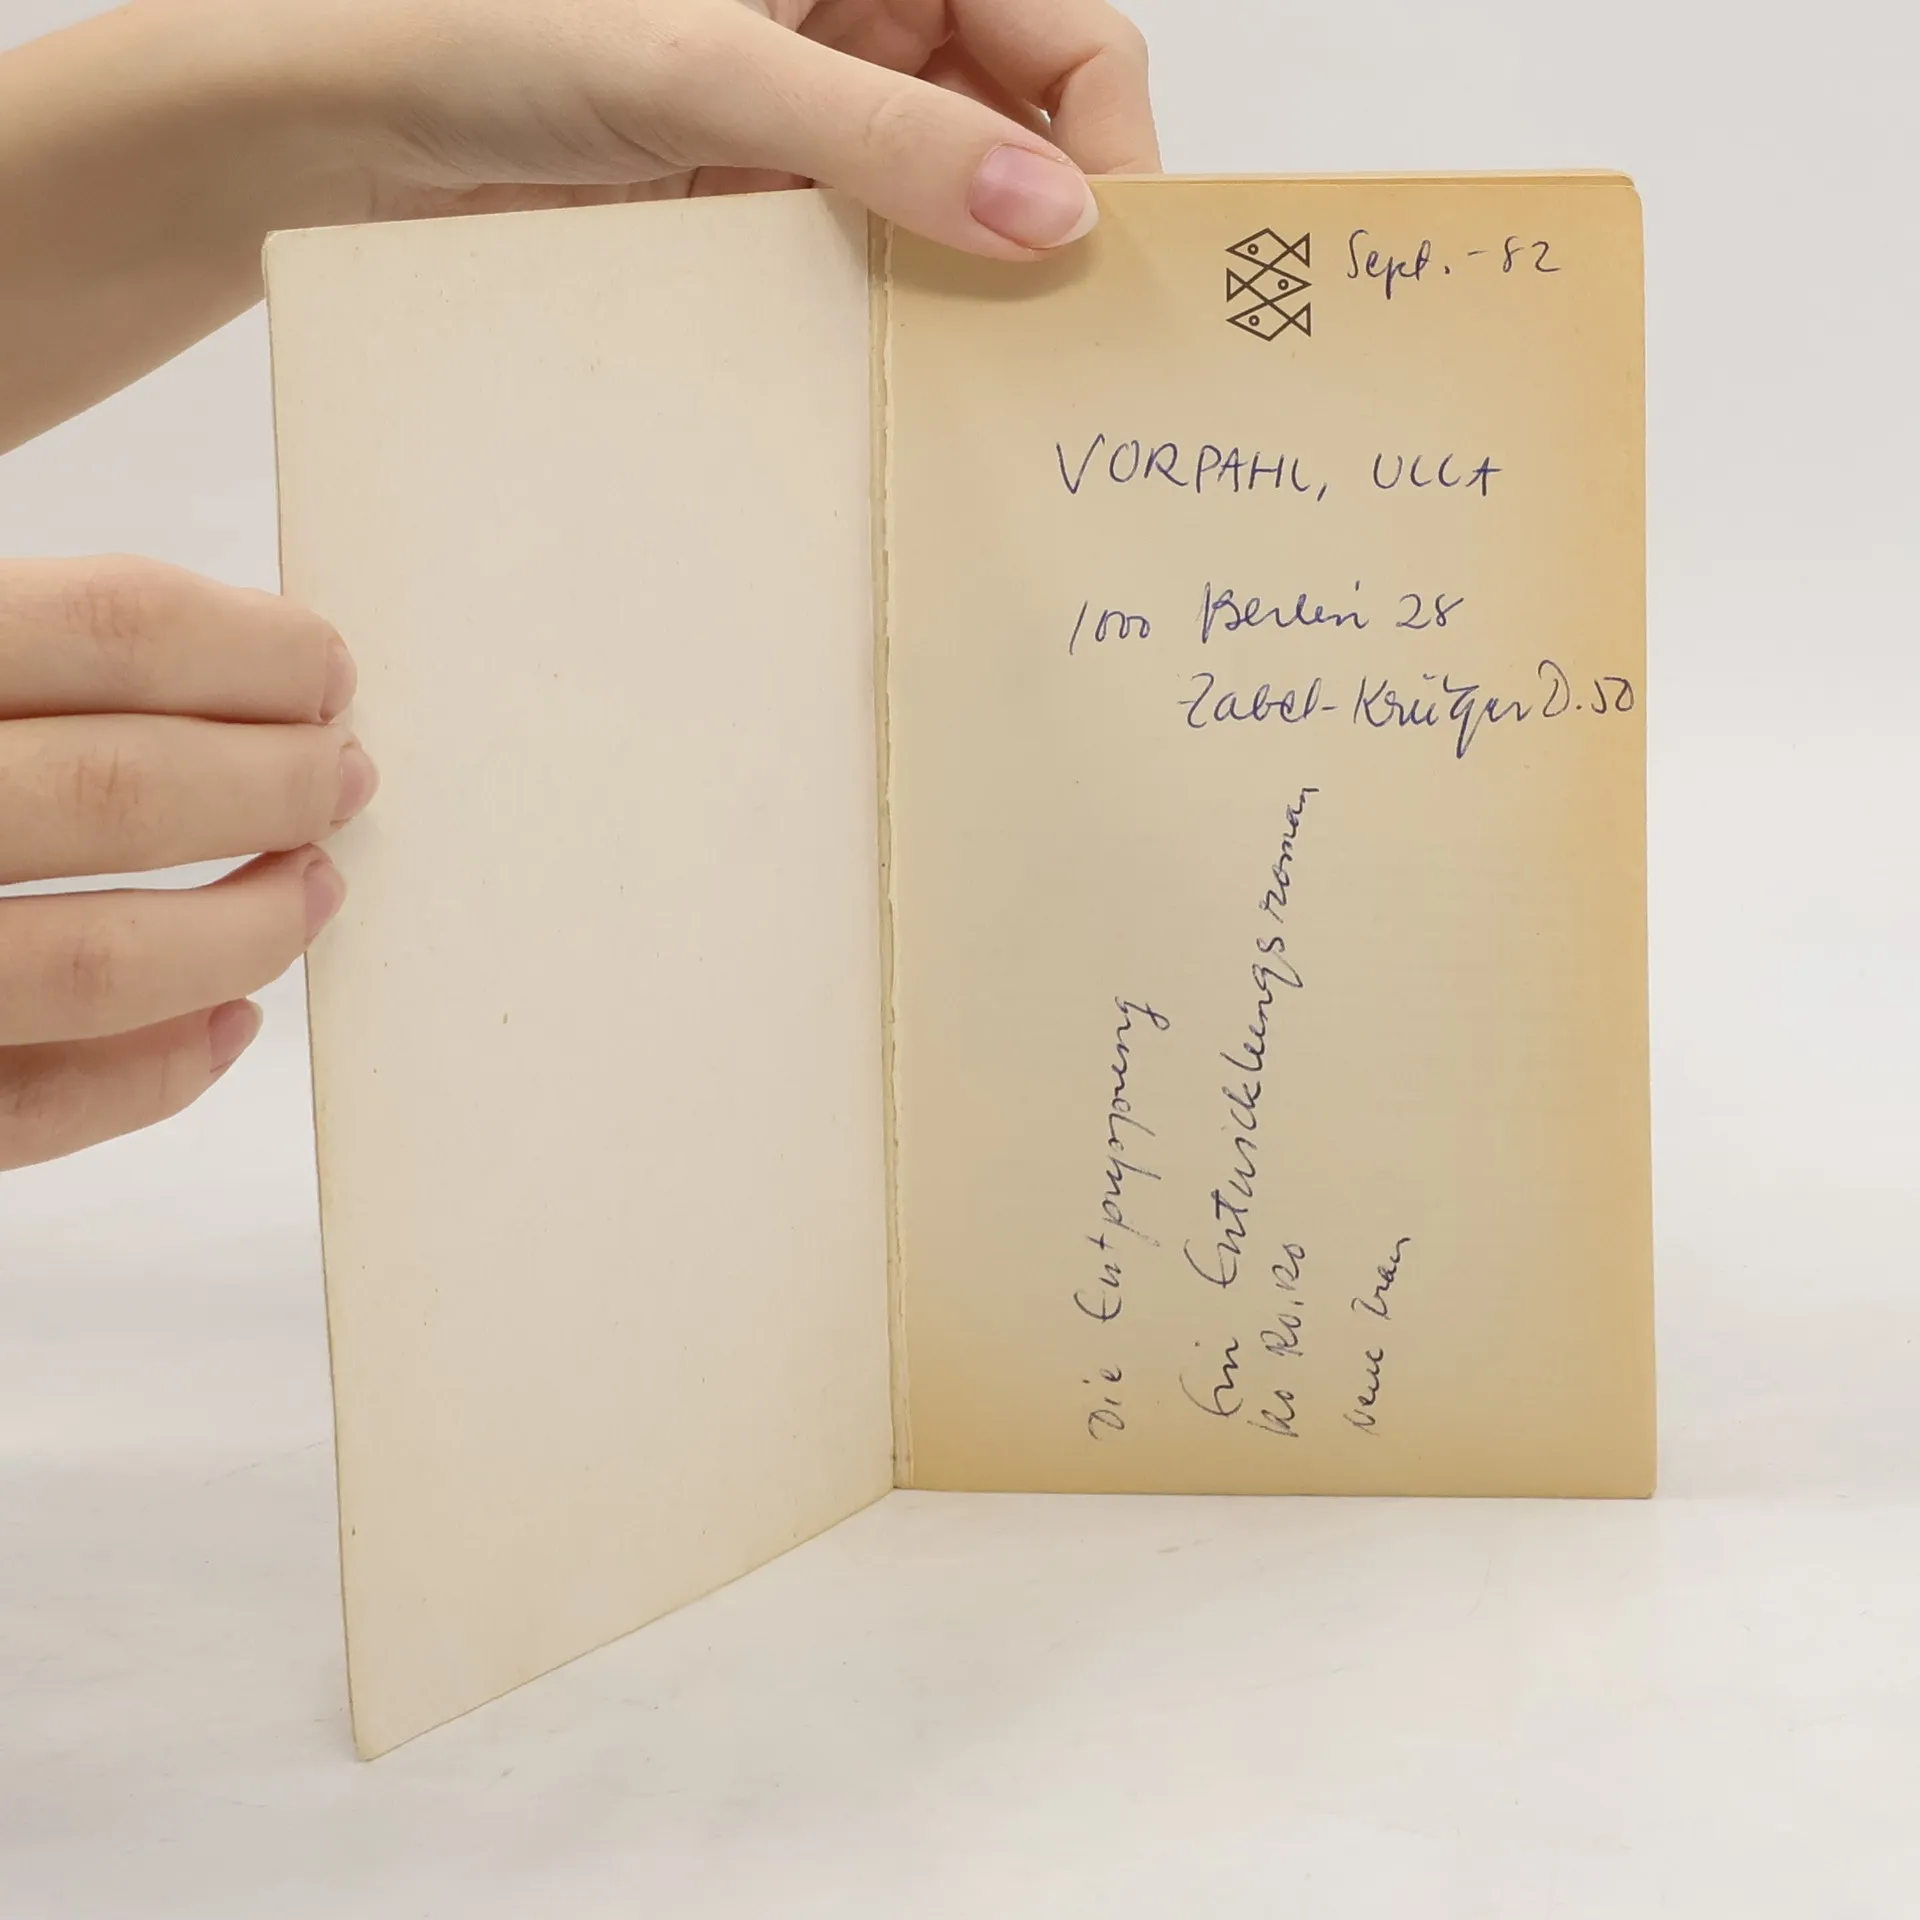 Sept. - 82
VORPAHL, ULLA
1000 Berlin 28
Zabel-Krüger D. 50
Die Entpuppung
Ein Entwicklungsroman
ro ro. ro
neue Frau